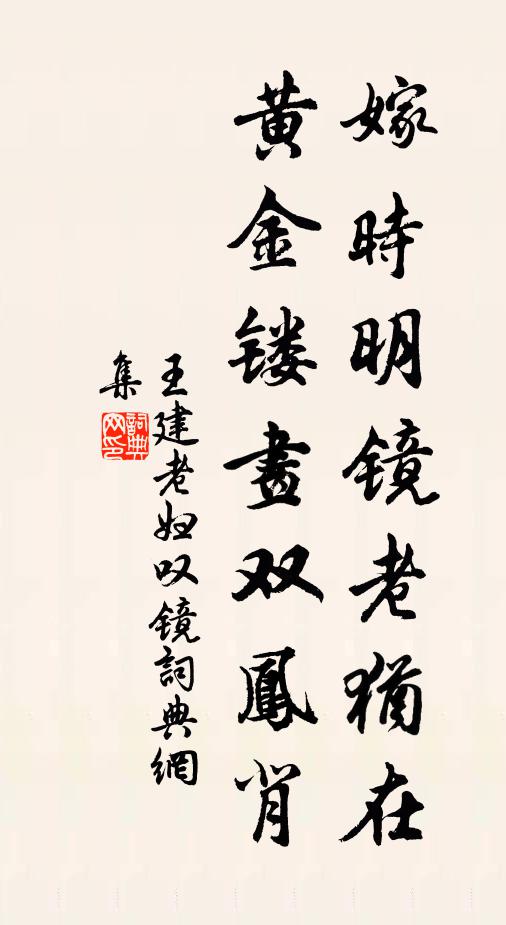 嫁時明镜老犹在
黄金镂畫双鳳背
王建老妇叹镜詞典網
集
詞典网印